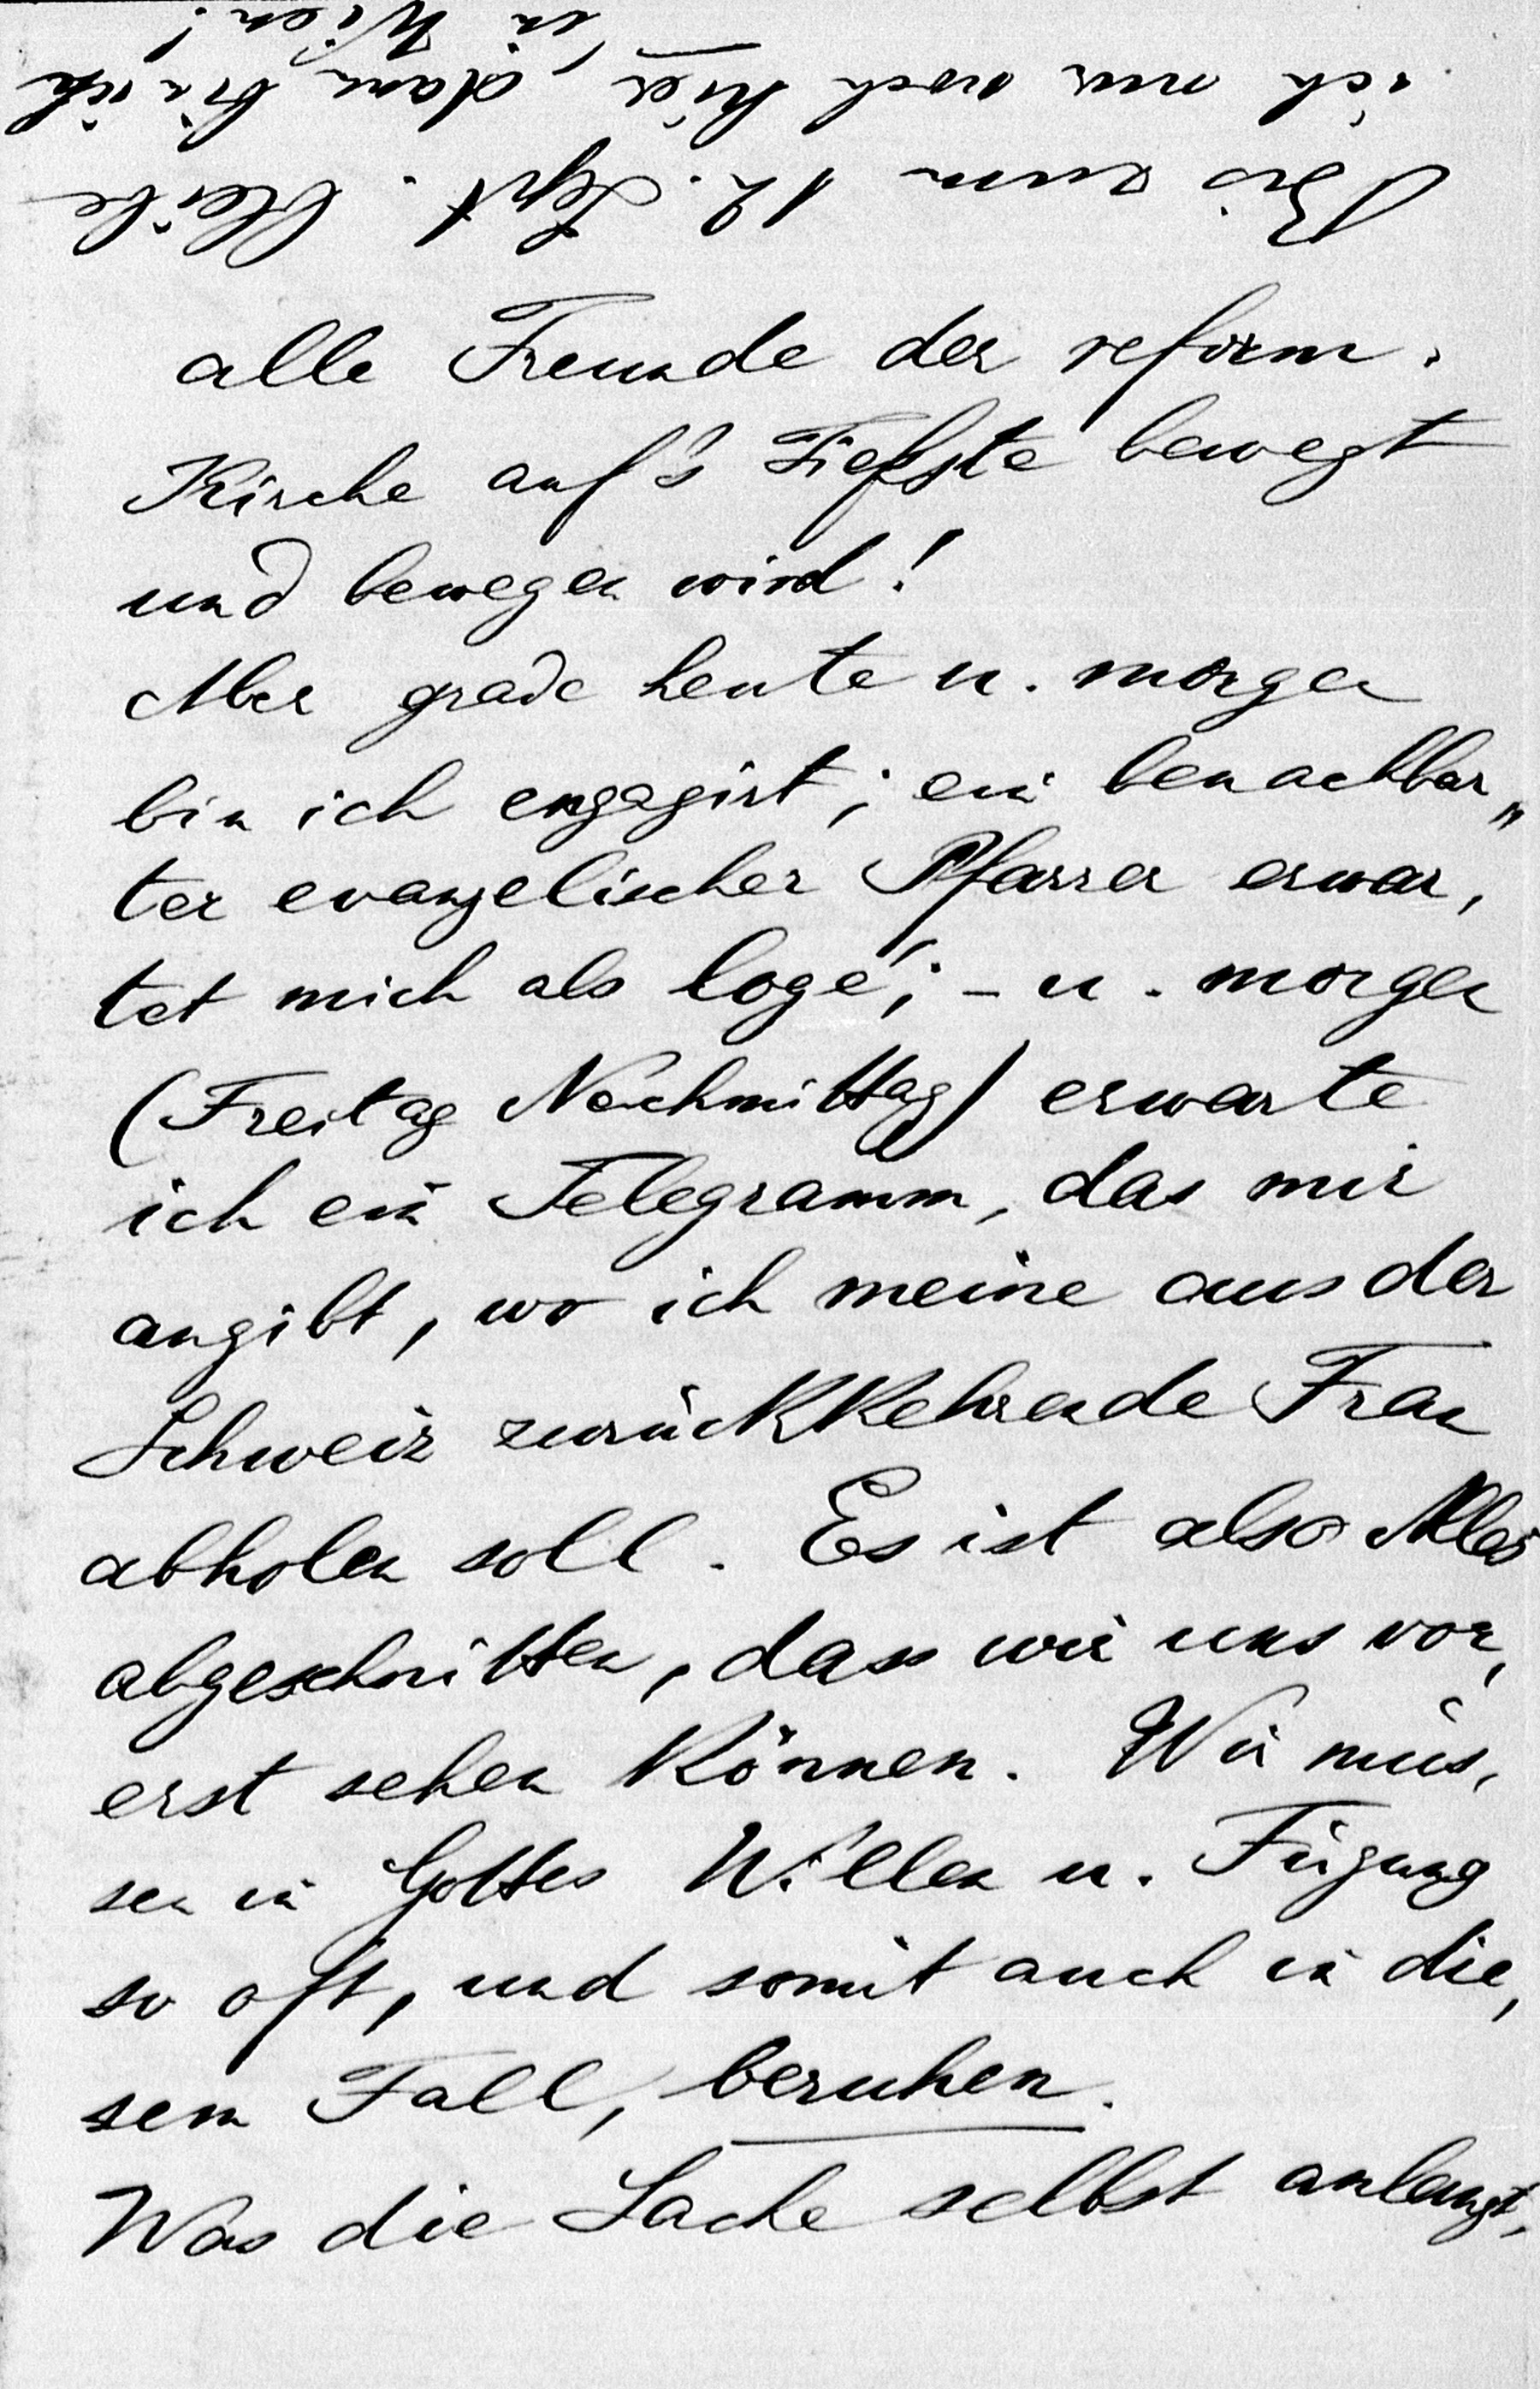 alle Freunde der reform.
Kirche auf's Tiefste bewegt
und bewegen wird!
Aber grade heute u. morgen
bin ich engagirt; ein benachbar„
ter evangelischer Pfarrer erwar,
tet mich als logé; - u. morgen
(Freitag Nachmittag) erwarte
ich ein Telegramm, das mir
angibt, wo ich meine aus der
Schweiz zurückkehrende Frau
abholen soll. Es ist also Alles
abgeschnitten, dass wir uns vor,
erst sehen können. Wir müs,
sen in Gottes Willen u. Fügung
so oft, und somit auch in die,
sem Fall, beruhen.
Was die Sache selbst anlangt,
Bis zum 12. Sept. bleibe
ich nur noch hier, dann bin ich
in Wien!